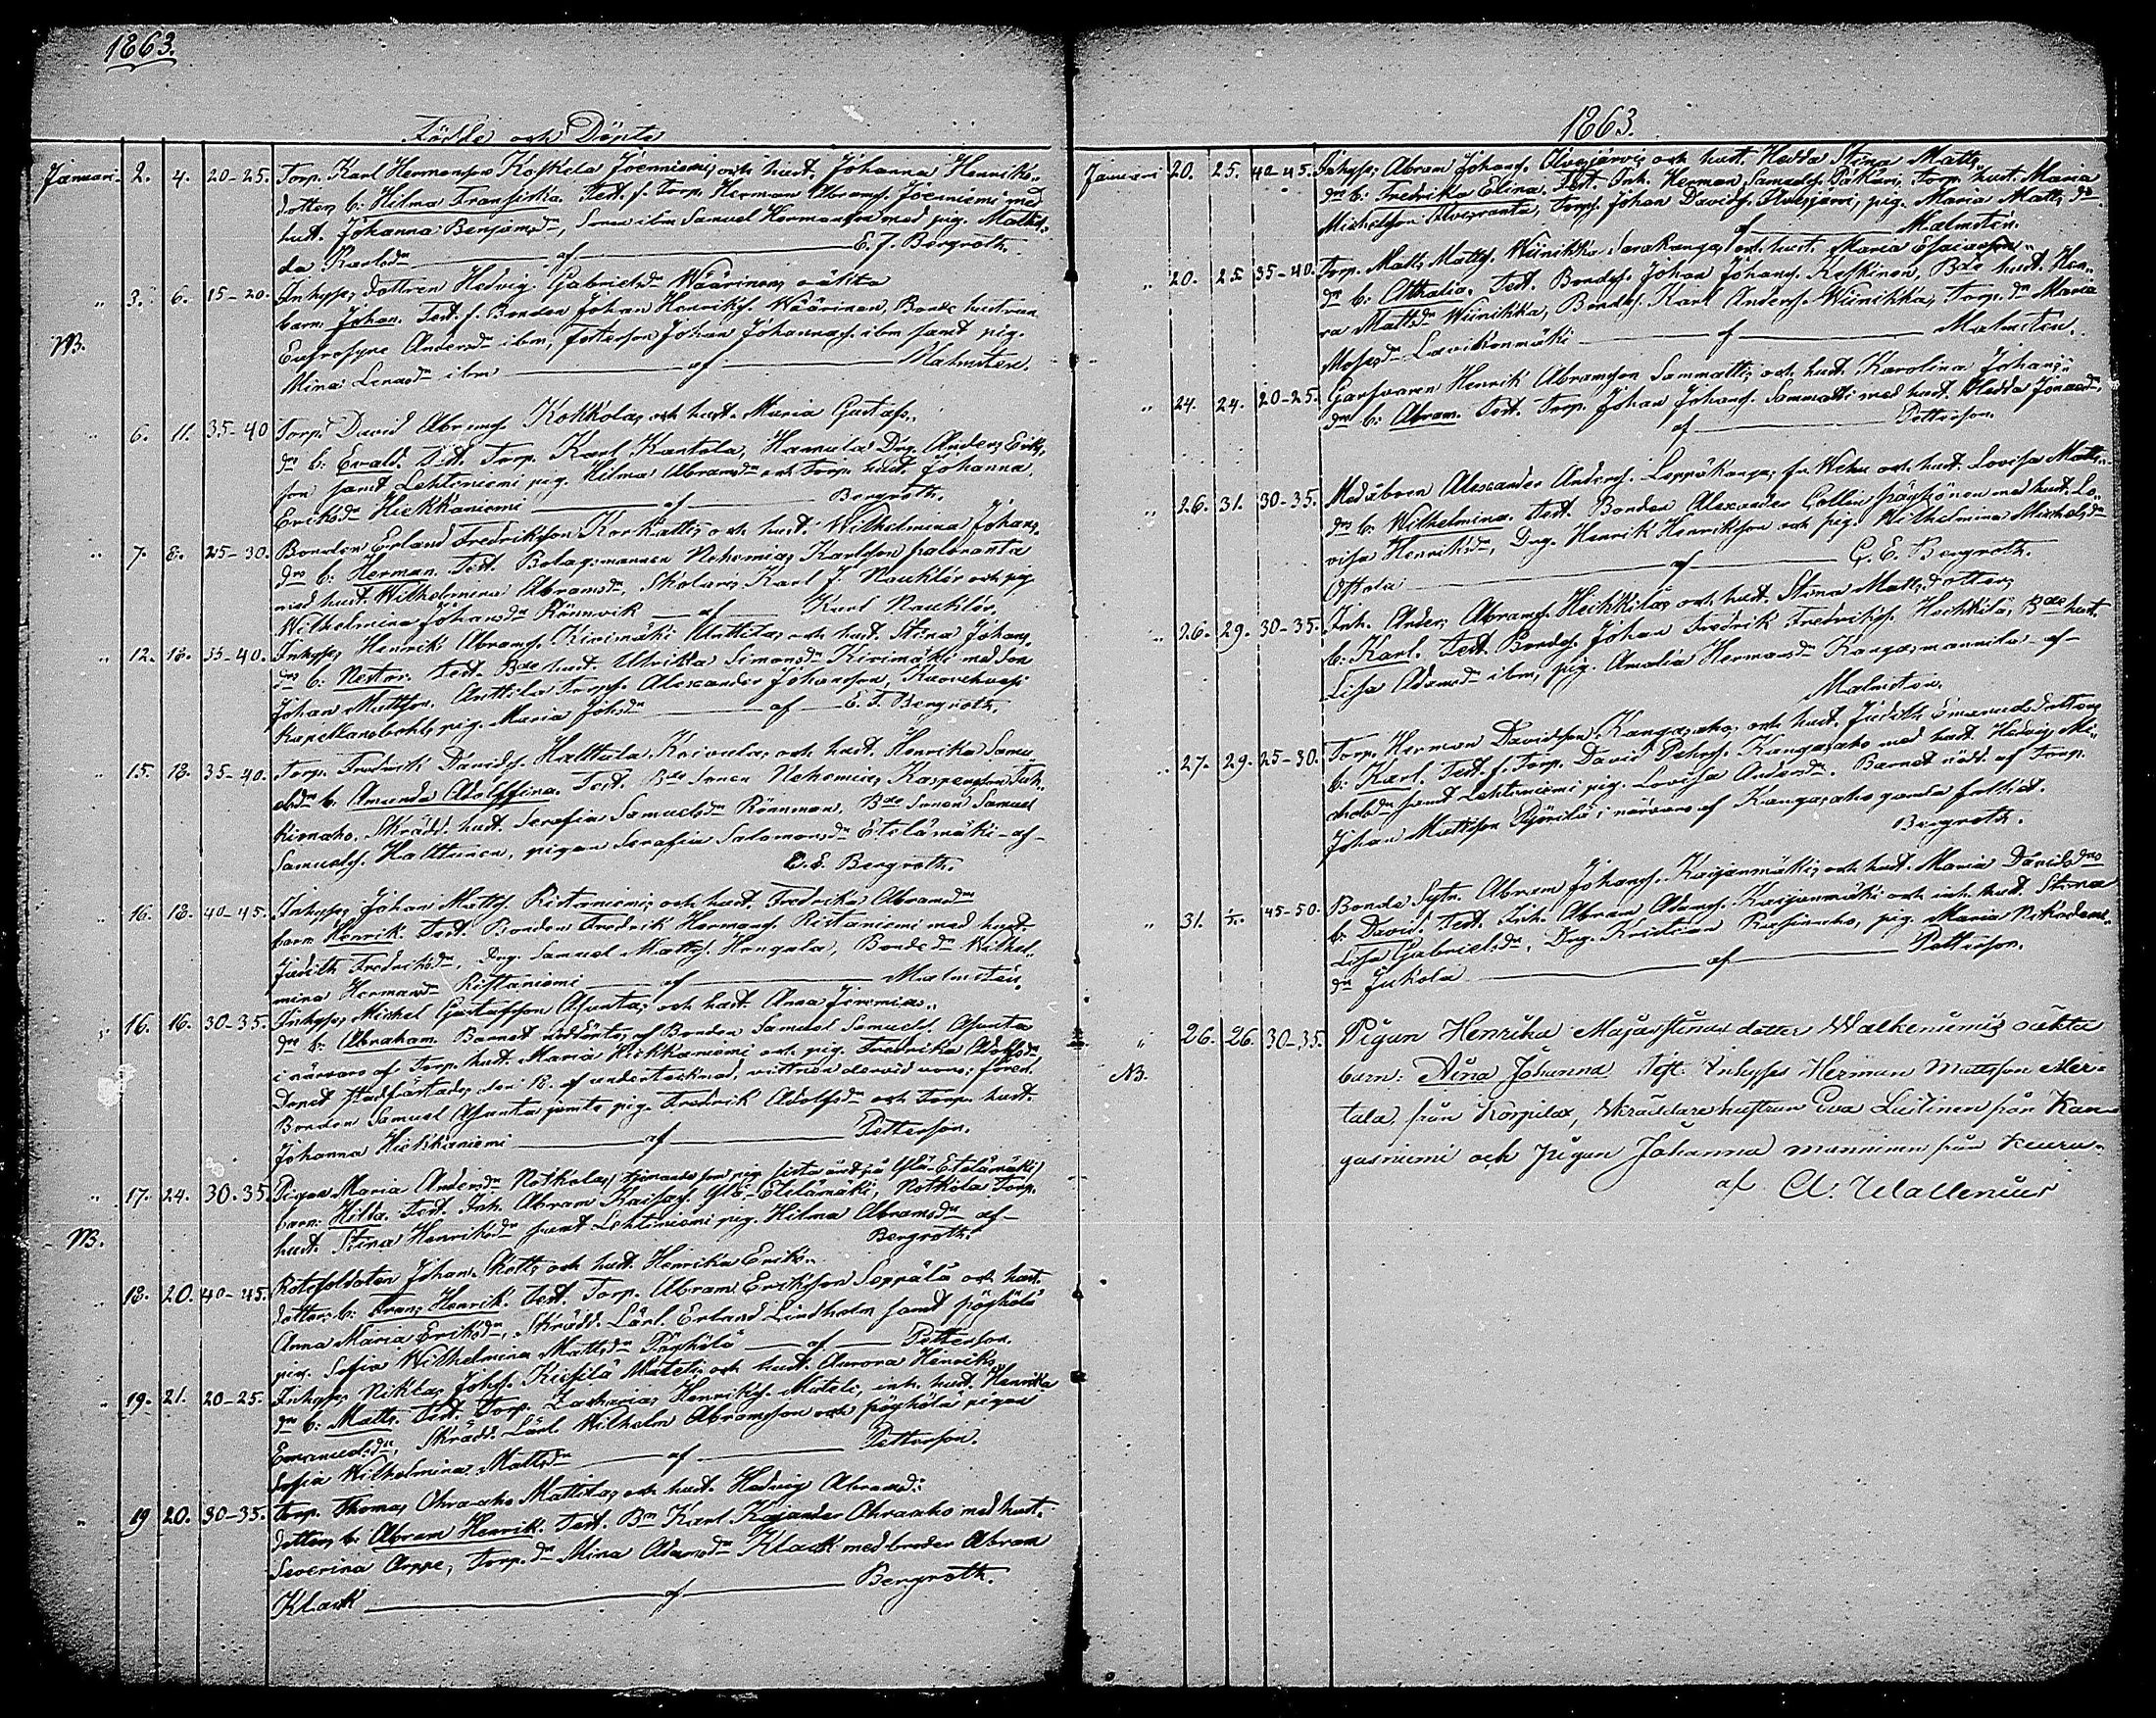 1863.
Födde och Döpte
Januari. 2. 4. 20-25. Torp. Karl Hermansson Koskela Joenniemi, och hust. Johanna Henriks-
dotters b: Hilma Fransiska. Test. f. Torp. Herman Abrams. Joenniemi med
hust. Johanna Benjamsdr, Sonen ibm Samuel Hermansson med pig. Mathil-
da Karlsdr af E. J. Bergroth.
" 3. 6. 15-20. Inhyses dottren Hedvig Gabrielsdr Wäärinens oäkta
barn Johan. Test. f. Bonden Johan Henriks. Wäärinen, Bonde hustrun
NB. Eufrosyne Andersdr ibm, fosterson Johan Johannas. ibm samt pig.
Mina Lenasdr ibm af Malmsten.
" 6. 11. 35-40 Torp. David Abrams. Kokkola, och hust. Maria Gustafs-
dr b: Evald. Test. Torp. Karl Kantola, Hamula Drg. Anders Eriks-
son samt Lehtiniemi pig. Hilma Abramsdr och Torp. hust. Johanna
Eriksdr Hiekkaniemi af Bergroth.
" 7. 8. 25-30. Bonden Erland Fredriksson Korkatti, och hust. Wilhelmina Johans-
drs b: Herman. Test. Bolagsmannen Nehemias Karlsson Saloranta
med hust. Wilhelmina Abramsdr, Skolares Karl J. Nauklér och pig.
Wilhelmina Johansdr Rönnvik af Karl Nauklér.
" 12. 18. 35-40. Inhyses Henrik Abrams. Kivimäki Anttila, och hust. Stina Johans-
drs b: Nestor. Test. Bde hust. Ulrika Simonsdr Kivimäki med son
Johan Mattson, Anttila Torps. Alexander Johansson,
Kapellansbohls pig. Maria Johsdr af E. J. Bergroth.
" 15. 18. 35-40. Torp. Fredrik Davids. Halttula Koivula, och hust. Henrika Samu-
elsdr b. Amanda Adolffina. Test. Bde Sonen Nehemias Kaspersson
Skrädd. hust. Serafia Samuelsdr Rönnman, Bde Sonen Samuel
Samuels. Halttunen, pigan Serafia Salomonsdr Etelämäki - af -
E. E. Bergroth.
" 16. 18. 40-45. Inhyses Johan Matts. Ristaniemi, och hust. Fredrika Abramsdrs
barn Henrik. Test. Bonden Fredrik Hermans. Ristaniemi med hust.
Judith Fredriksdr, Drg. Samuel Matts. Hengala, Bonde dr Wilhel-
mina Hermansdr Ristaniemi af Malmstén.
" 16. 16. 30-35. Inhyses Michel Gustafsson Asunta, och hust. Anna Jeremias-
dr b: Abraham. Barnet nöddöpts, af Bonden Samuel Samuels. Asunta
i närvaro af Torp. hust. Maria Hiekkaniemi och pig. Fredrika Adolfsdr,
Dopet stadfästades den 18. af undertecknad, vittnen dervid voro: fören.
Bonden Samuel Asunta jemte pig. Fredrik Adolfsdr och Torp. hust.
Johanna Hiekkaniemi af Petterson.
" 17. 24. 30-35 Pigan Maria Andersdr Notkola, (tjenande som pig. sista året på Ylä-Etelämäki)
barn: Hilla. Test. Inh. Abram Kaisas. Ylä-Etelämäki, Notkola Torp.
NB. hust. Stina Henriksdr samt Lehtiniemi pig. Hilma Abramsdr af -
Bergroth.
" 18. 20. 40-45. Rotesoldaten Johan Kotts och hust. Henrika Eriks-
dotters b: Frans Henrik. Test. Torp. Abram Eriksson Soppälä och hust.
Anna Maria Eriksdr, Skrädd. Lärl. Erland Lindholm samt Pöyhölä
pig. Sofia Wilhelmina Mattsdr Pöyhölä af Petterson.
" 19. 21. 20-25. Inhyses Niklas Johs. Kiesilä Mateli, och hust. Aurora Henriks-
dr b: Matts. Test. Torp. Zacharias Henriks. Mateli, inh. hust. Henrika
Emanuelsdr, Skrädd. Lärl. Wilhelm Abramsson och Pöyhölä pigan
Sofia Wilhelmina Mattsdr af Petterson.
" 19 20. 30-35. Torp. Thomas Ohra-aho Mattila, och hust. Hedvig Abrams-
dotters b. Abram Henrik. Test. Bn Karl Kajander Ohraaho med hust.
Severina Arppe, Torp. dr Mina Adamsdr Klack med broder Abram
Klack af Bergroth.
1863.
Januari 20. 25. 40-45. Inhyses Abram Johans. Elvesjärvi, och hust. Hedda Stina Matts-
dr b: Fredrika Elina. Test. Inh. Herman Samuels. Päkäri, Torp. hust. Maria
Michelsson Elvesranta, Torps. Johan Davids. Elvesjärvi, pig. Maria Matts. dr.
af Malmstén.
" 20. 25. 35-40. Torp. Matts Matts. Wiinikka Sarakanga, och hust. Maria Esaiasson-
dr b: Atthalia. Test. Bondes. Johan Johans. Keskinen, Bde hust. Hen-
ra Mattsdr Wiinikka, Bondes. Karl Anders. Wiinikka, Torp. dr Maria
Mosesdr Lavikonmäki af Malmsten.
" 24. 24. 20-25. Garfvaren Henrik Abramsson Sammatti, och hust. Karolina Johans-
drs b: Abram. Test. Torp. Johan Johans. Sammatti med hust. Hedda Jonasdr,
af Petterson.
" 26. 31. 30-35. Medåboen Alexander Anders. Leppäkanga, fr. Wehu och hust. Lovisa Matts-
drs b: Wilhelmina. Test. Bonden Alexander Collin Pöyhönen med hust. Lo-
visa Henriksdr, Drg. Henrik Henriksson och pig. Wilhelmina Michelsdr
Ostola af G. E. Bergroth.
" 26. 29. 30-35. Inh. Anders Abrams. Heikkilä, och hust. Stina Mattsdotters
b: Karl. Test. Bondes. Johan Fredrik Fredriks. Heikkilä, Bde hust.
Lisa Adamsdr ibm, pig. Amalia Hermansdr Kangasmannila - af -
Malmsten.
" 27. 29. 25-30. Torp. Herman Davidsson Kangasaho, och hust. Judith Emanuelsdotters
b: Karl. Test. f. Torp. David Johans. Kangasaho med hust. Hedvig Mi-
chelsdr samt Lehtiniemi pig. Lovisa Andersdr. Barnet nödd. af Torp.
Johan Mattsson Pynnilä i närvaro af Kangasaho gamla folket.
Bergroth.
" 31. 1/2. 45-50. Bonde Sytn. Abram Johans. Kaijanmäki, och hust. Maria Davidsdrs
b: David. Test. Inh. Abram Adams. Kaijanmäki och inh. hust. Stina
Lisa Gabrielsdr, Drg. Kristian Rusinaho, pig. Maria Nikodems-
dr Jukola af Petterson.
" 26. 26. 30-35. Pigan Henrika Majastinas dotter Walkeniemis oäkta
NB. barn: Aina Johanna Test. Inhyses Herman Mattsson Mer-
tala, från Korpilax, Skräddarehustrun Eva Lustinen från Kan-
gasniemi och Pigan Johanna Manninen från Keuru-
af A. Wallenius